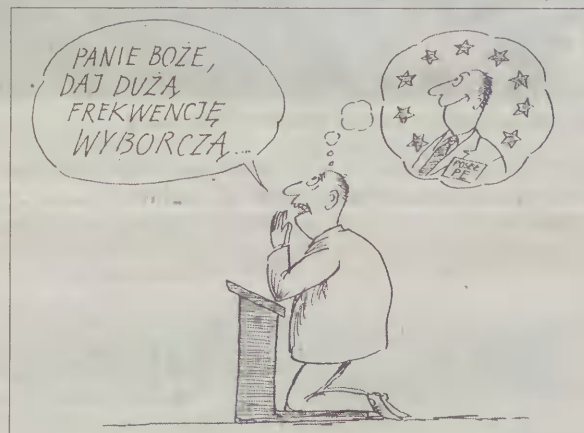 PANIE BOŻE,
DAJ DUŻĄ
FREKWENCJĘ
WYBORCZĄ...
POSEŁ
PE